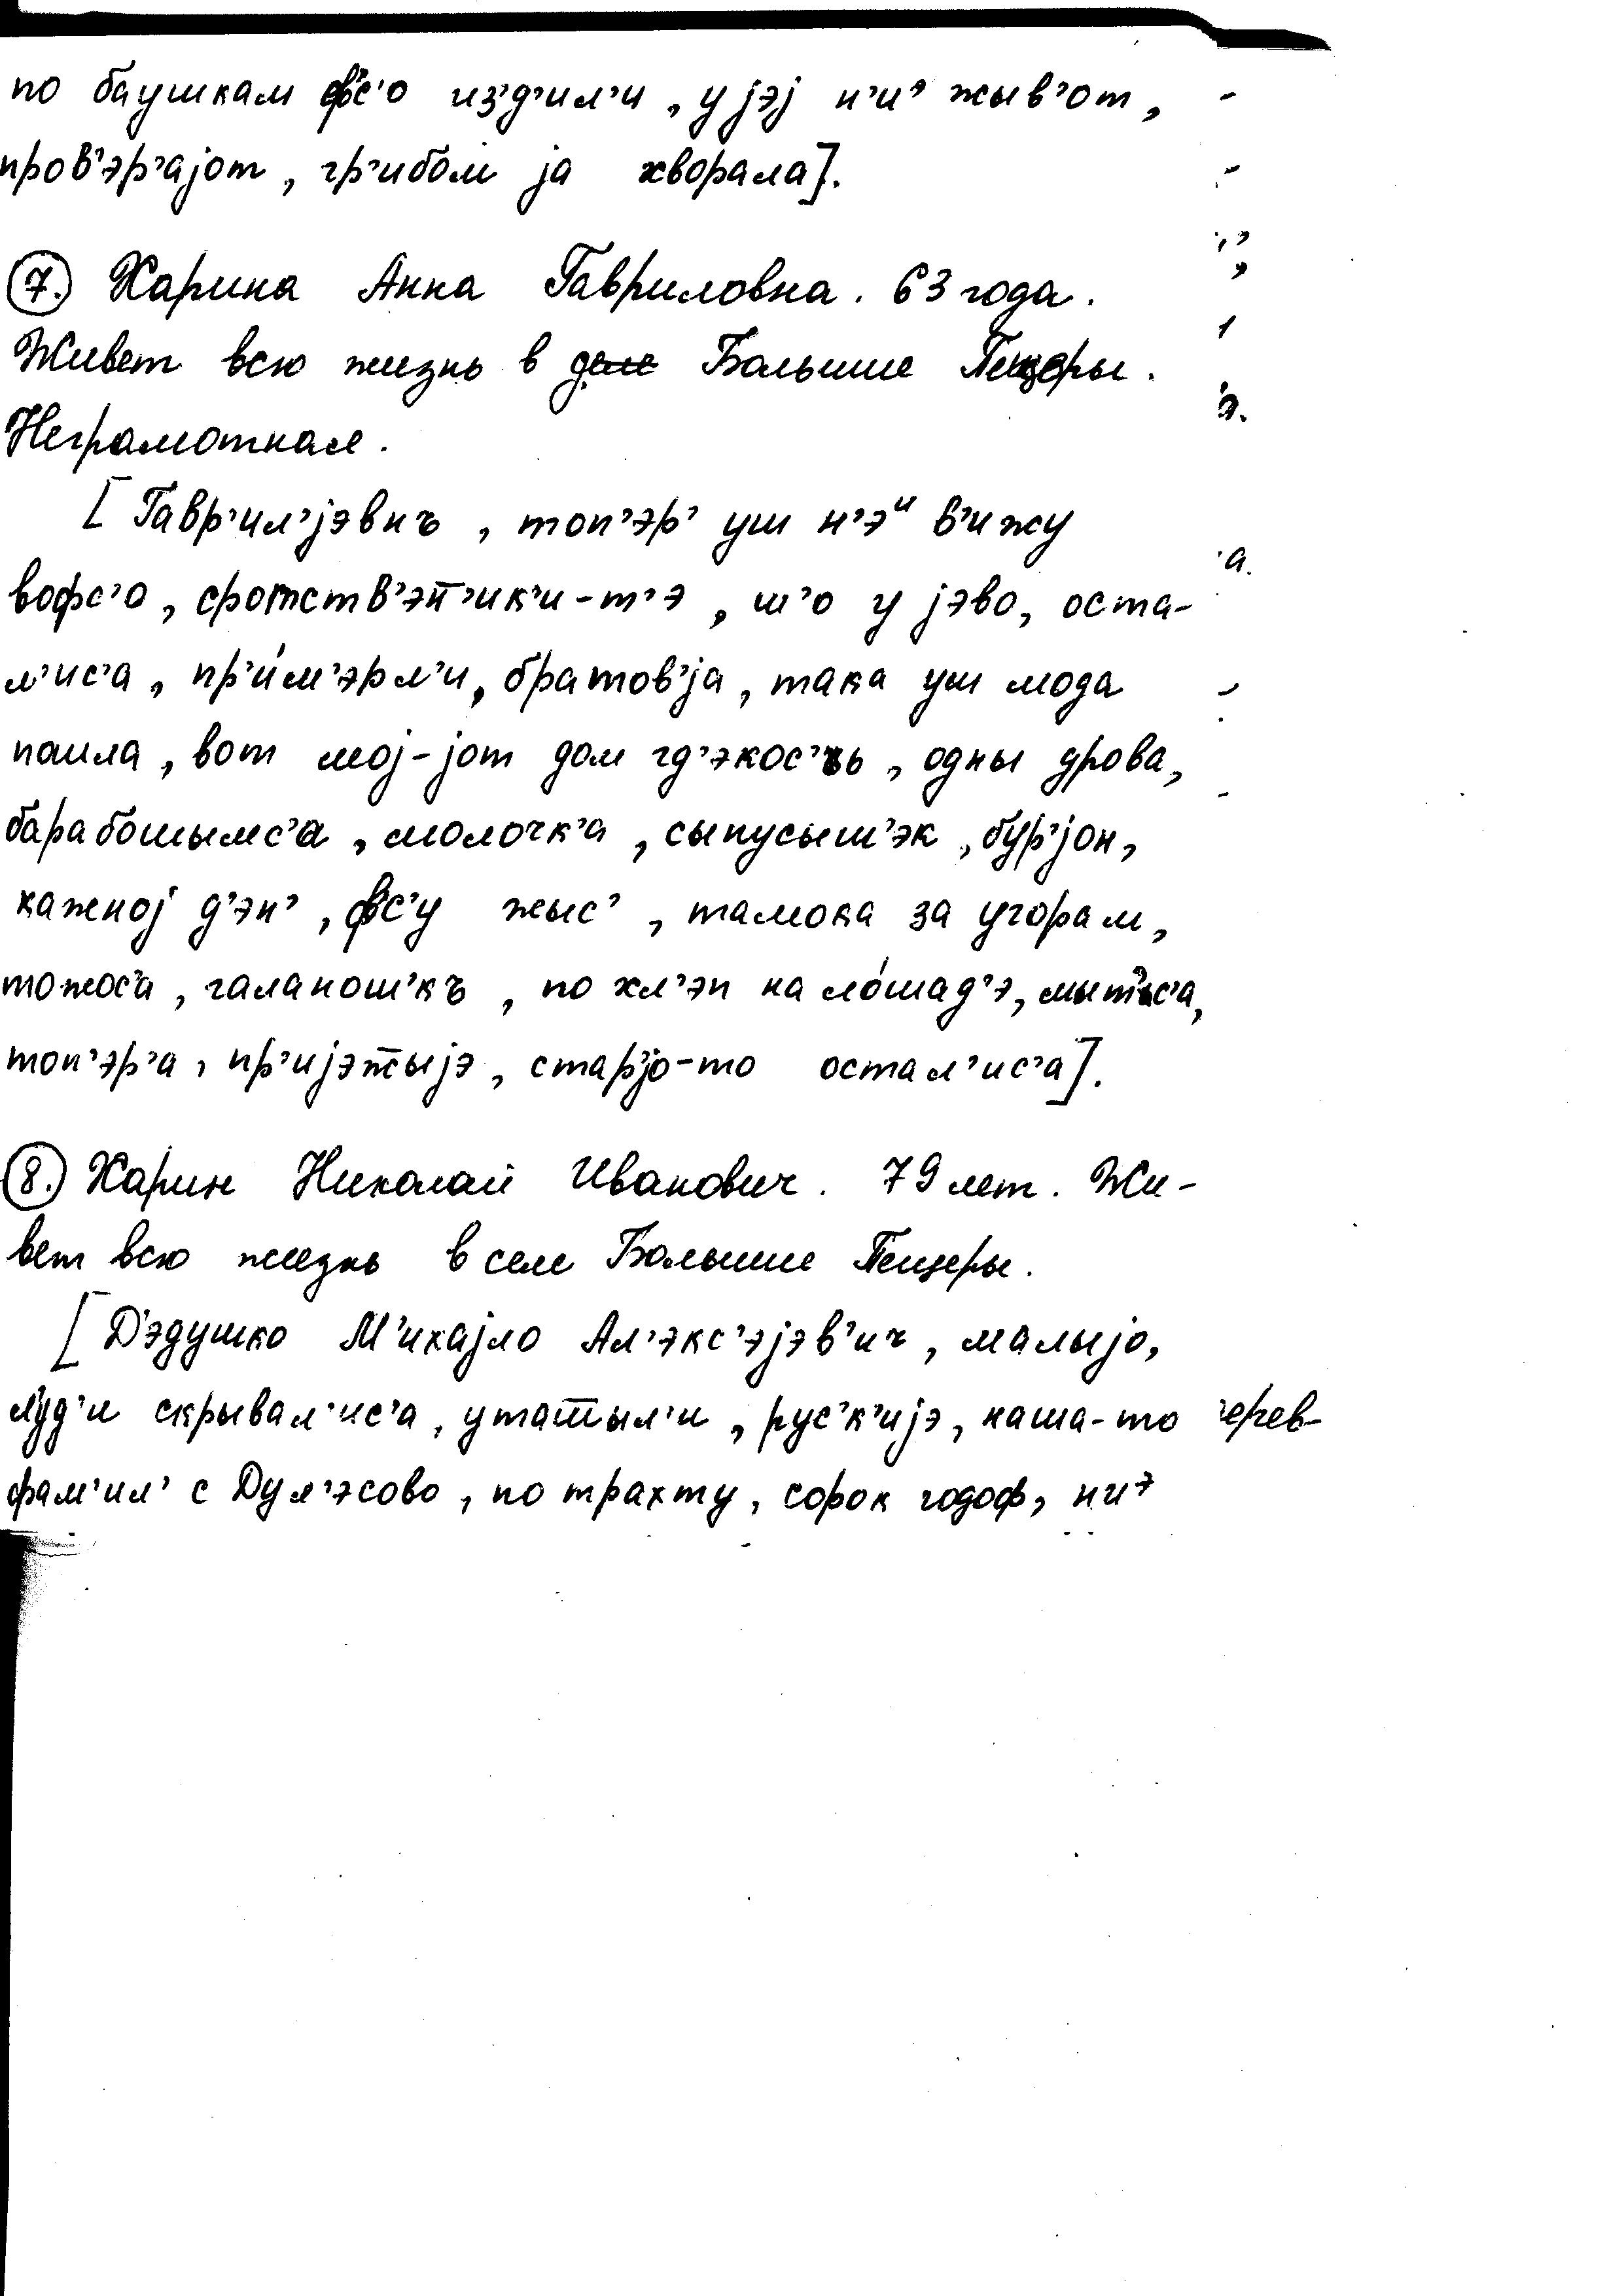 по баушкам ф'с'о из'д'ил'и, у jэj н'и' жыв'от,
пров'эр'аjот, гр'ибом ja хворала].
7. Харина Анна Гавриловна. 63 года.
Живет всю жизнь в Большие Пещеры.
Неграмотная.
[Гавр'ил'jэвнъ, топ'эр' уш н'эᶦ в'ижу
вофс'о, сротств'эн̄'ик'и-т'э, ш'о у jэво, оста-
л'ис'а, пр'и́м'эрл'и, братов'ja, така уш мода
пошла, вот моj-jот дом гд'экос'ъ, одны дрова,
барабошымс'а, молочк'а, сыпусыш'эк, бур'jон,
кажноj д'эн', ф'с'у жыс', тамока за угорам,
тожос'а, галанош'къ, по хл'эп на ло́шад'э, мыт̄'с'а,
топ'эр'а, пр'иjэт̄ыjэ, стар'jо-то остал'ис'а].
8. Харин Николай Иванович. 79 лет. Жи-
вет всю жизнь в селе Большие Пещеры.
[Д'эдушко М'ихаjло Ал'экс'эjэв'ич, малыjо,
л'уд'и скрывал'ис'а, утат̄ыл'и, рус'к'иjэ, наша-то
фам'ил' с Дул'эсово, по трахту, сорок годоф, ниᵊ